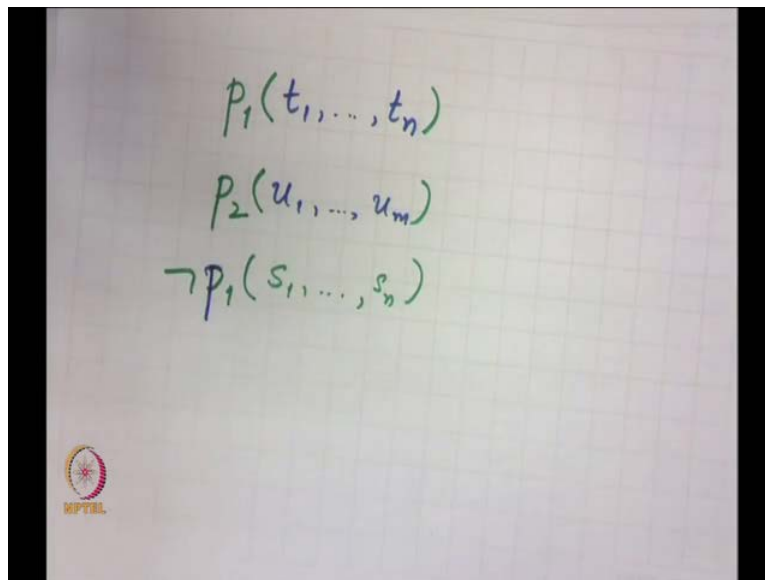 p₁(t₁, ..., tₙ)
p₂(u₁, ..., uₘ)
¬p₁(s₁, ..., sₙ)
NPTEL